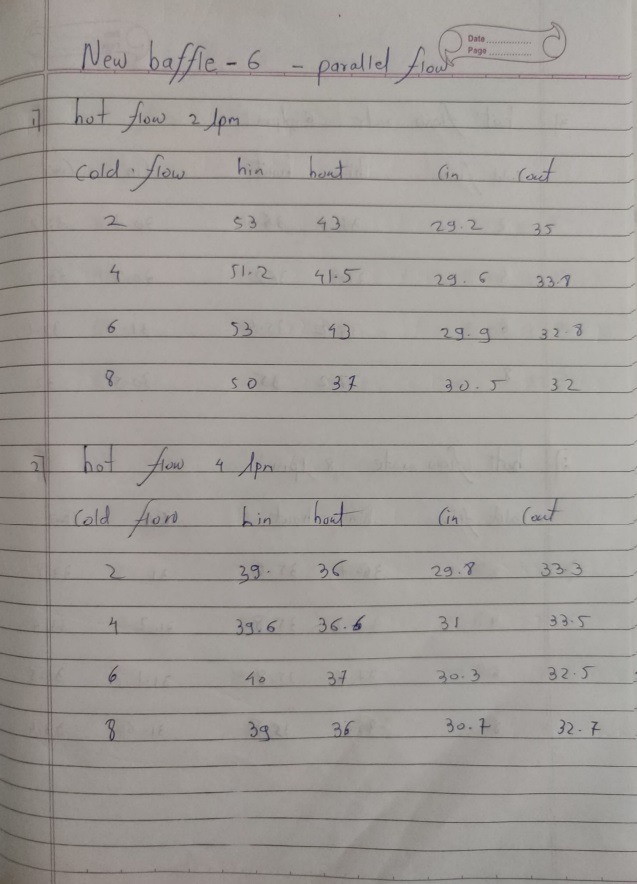 Date
Page
New baffle - 6 - parallel flow
1] hot flow 2 lpm
cold flow hin hout Cin Cout
2 53 43 29.2 35
4 51.2 41.5 29.6
6 53 43 29.9 32.8
8 50 37 30.5 32
2] hot flow 4 lpm
Cold flow hin hout Cin Cout
2 39. 36 29.8 33.3
4 39.6 36.6 31 33.5
6 40 37 30.3 32.5
8 39 36 30.7 32.7